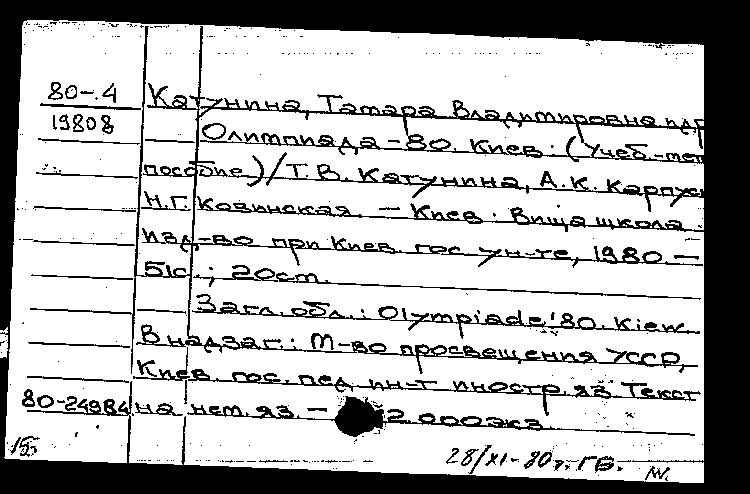 80-.4 Катунина, Тамара Владимировна и др
19808 Олимпиада-80. Киев: (Учеб.-мет
пособие)/Т.В. Катунина, А.К. Карпус
Н.Г. Козинская. — Киев: Вища школа.
изд-во при Киев. гос. ун-те, 1980. —
51с.; 20см.
Загл. обл.: Olympiade'80. Kiew.
В надзаг.: М-во просвещения УССР,
Киев. гос. пед. ин-т иностр. яз. Текст
80-24984 на нем. яз. — 2.000экз.
28/XI-80г. ГБ.